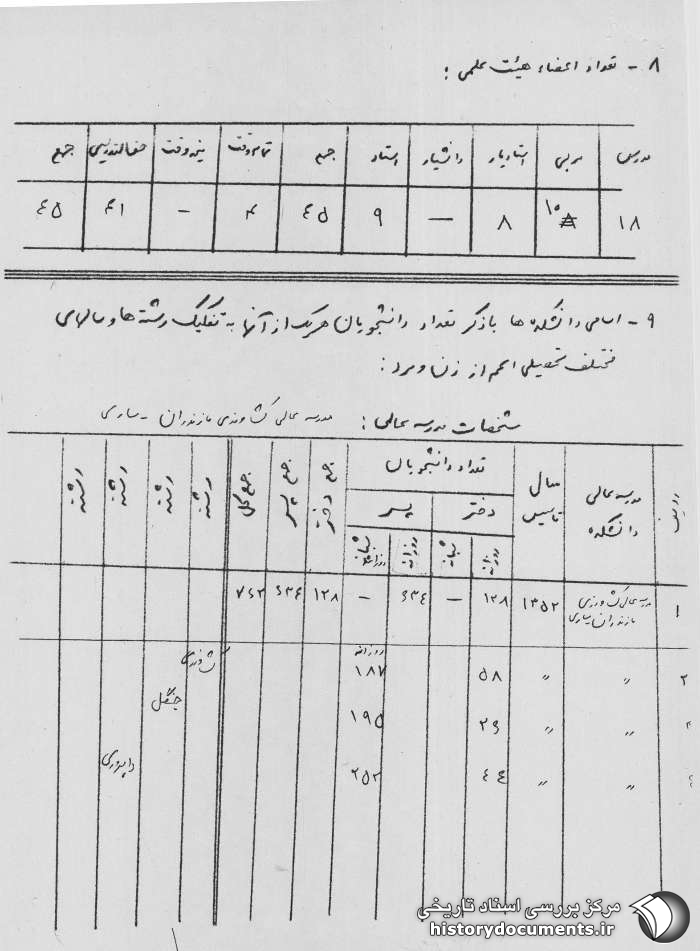 ۸ - تعداد اعضاء هیئت علمی :
مدرس مربی استادیار دانشیار استاد جمع تمام وقت نیمه وقت حق‌التدریس جمع
۱۸ ۱۰ ۸ — ۹ ۴۵ ۴ - ۴۱ ۴۵
۹ - اسامی دانشکده ها با ذکر تعداد دانشجویان هر یک از آنها به تفکیک رشته ها و سالهای
مختلف تحصیلی اعم از زن و مرد :
مشخصات مدرسه عالی : مدرسه عالی کشاورزی مازندران - ساری
ردیف مدرسه عالی دانشکده سال تاسیس تعداد دانشجویان جمع دختر جمع پسر جمع کل رشته رشته رشته رشته
دختر پسر
روزانه شبانه روزانه شبانه
۱ مدرسه عالی کشاورزی مازندران ساری ۱۳۵۲ ۱۲۸ — ۶۳۴ — ۱۲۸ ۶۳۴ ۷۶۲
۲ " " ۵۸ روزانه ۱۸۷ کشاورزی
" " ۲۶ ۱۹۵ جنگل
۴ " " ۴۴ ۲۵۲ دامپروری
مرکز بررسی اسناد تاریخی
historydocuments.ir